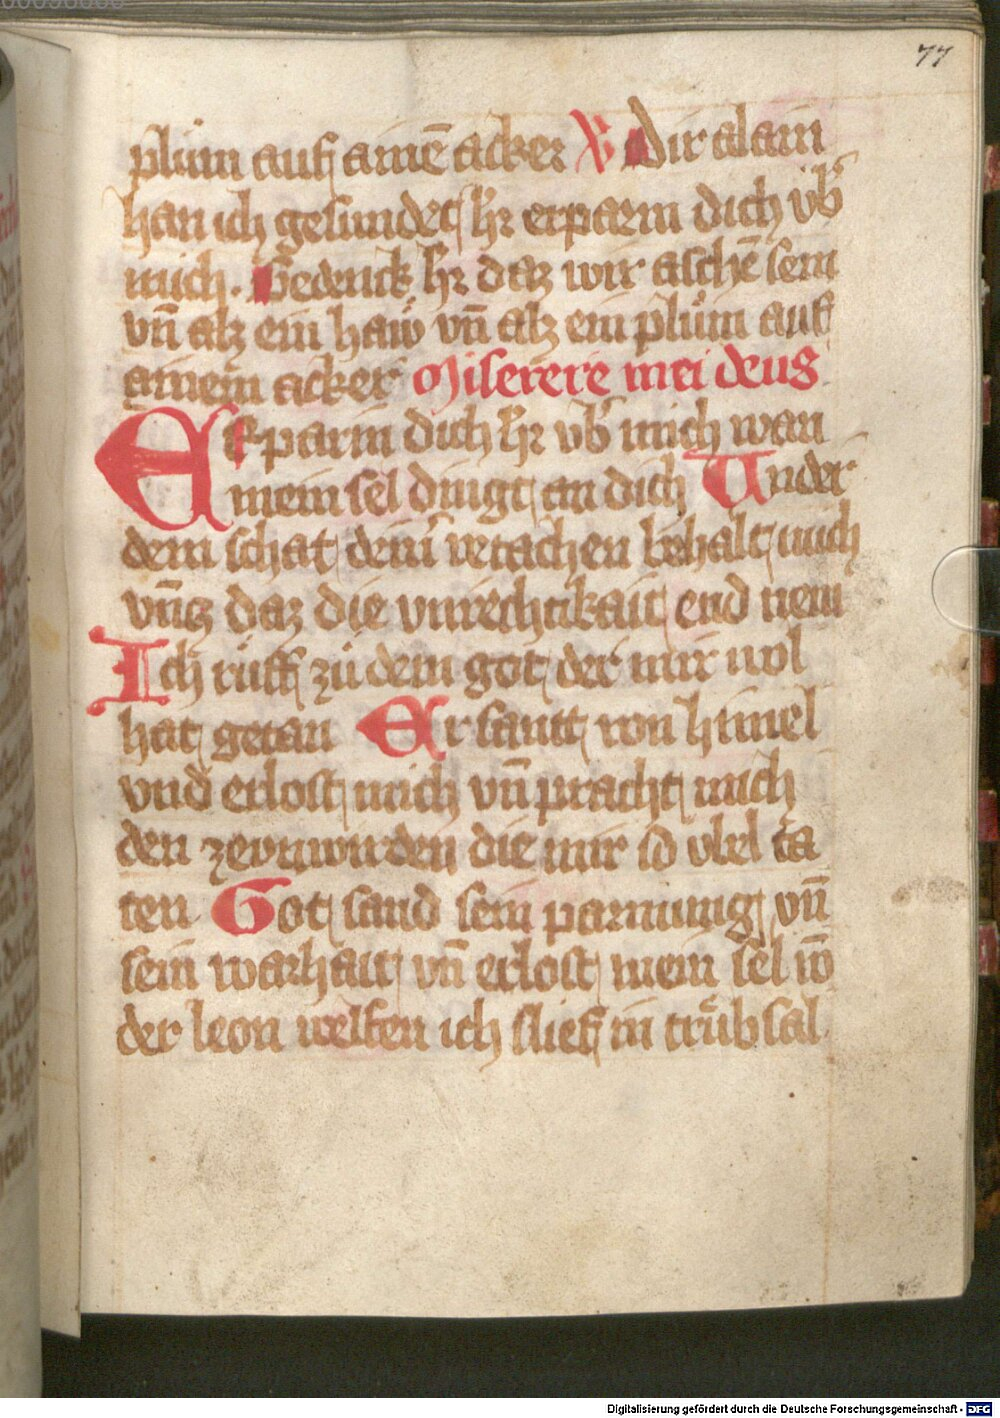 77
plům auf ainē acker ℟ Dir alain
han ich gesundet hꝛ erparm dich vb̄
mich. Gedenck hꝛ daz wir aschē sein
vn̄ alz ein haw̆ vn̄ alz ein plům auf
ainem acker Miserere mei deus
Erparm dich hꝛ vb̄ mich wan
mein sel dingt an dich Under
dem schat deiner vetachen behalt mich
vn̄cz daz die vnrechtikait end nem
Ich rüff zü dem got der mir wol
hat getan Er santt von himel
vnd erlost mich vn̄ pracht mich
den zevnwirden die mir so vbel ta
ten Got sand sein parmung vn̄
sein warhait vn̄ erlost mein sel vō
der leon welfen ich slief in trübsal
Digitalisierung gefördert durch die Deutsche Forschungsgemeinschaft - DFG